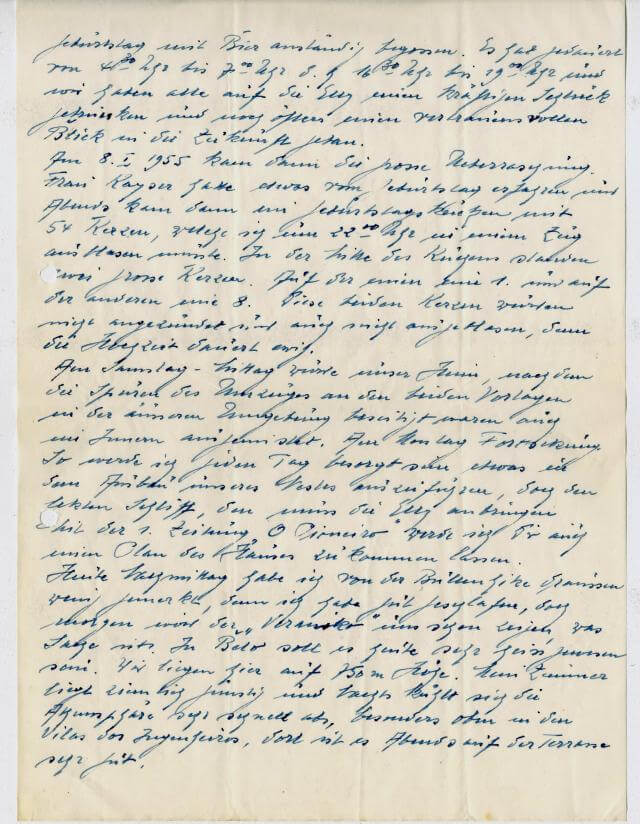 Geburtstag mit Bier anständig begossen. Es hat gedauert
von 4³⁰ Uhr bis 7⁰⁰ Uhr d. h. 16³⁰ Uhr bis 19⁰⁰ Uhr und
wir haben alle auf die Elly einen kräftigen Schluck
getrunken und noch öfters einen vertrauensvollen
Blick in die Zukunft getan.
Am 8. I 1955 kam dann die grosse Ueberraschung.
Frau Kayser hatte etwas vom Geburtstag erfahren und
Abends kam dann ein Geburtstagskuchen mit
54 Kerzen, welche ich um 22⁰⁰ Uhr in einem Zug
ausblasen musste. In der Mitte des Kuchens standen
zwei grosse Kerzen. Auf der einen eine 1. und auf
der anderen eine 8. Diese beiden Kerzen wurden
nicht angezündet und auch nicht ausgeblasen, denn
die Hochzeit dauert ewig.
Am Samstag-Mittag wurde unser Heim, nachdem
die Spuren des Umzuges an den beiden Vortagen
in der äusseren Umgebung beseitigt waren auch
im Innern ausgemistet. Am Montag Fortsetzung
So werde ich jeden Tag besorgt sein etwas in
dem Aufbau unseres Nestes auszuführen, doch den
letzten Schliff, den muss die Elly anbringen
Mit der 1. Zeitung "O Pioneiro" werde ich Dir auch
einen Plan des Hauses zukommen lassen.
Heute Nachmittag habe ich von der Bullenhitze draussen
wenig gemerkt, denn ich habe gut geschlafen, doch
morgen wird der "Veranico" uns schon zeigen, was
Sache ist. In Belo soll es heute sehr heiss gewesen
sein. Wir liegen hier auf 750m Höhe. Mein Zimmer
liegt ziemlich günstig und nachts kühlt sich die
Atmosphäre sehr schnell ab, besonders oben in den
Vilas dos Ingenheiros, dort ist es Abends auf der Terrasse
sehr gut.